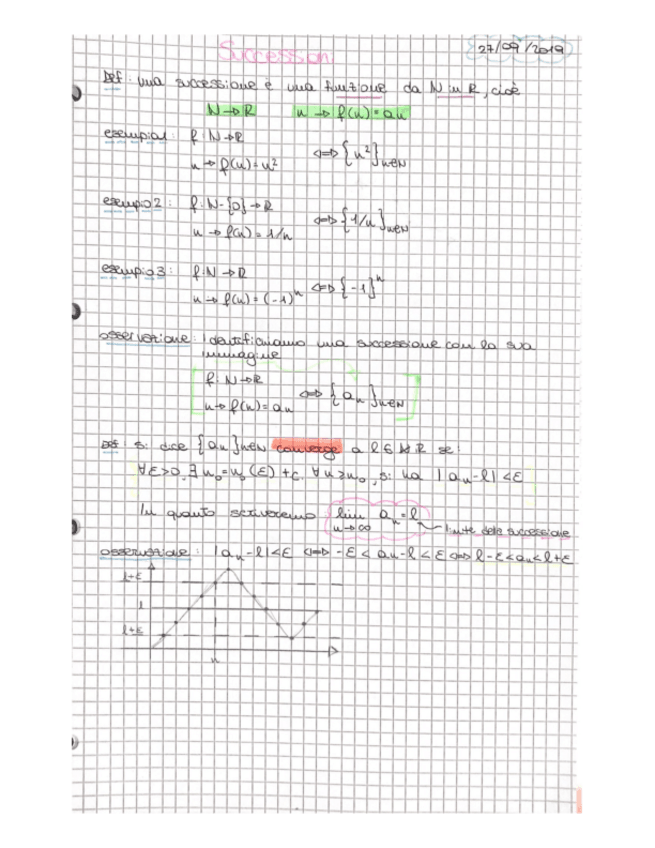 Successioni
27/09/2019
Def: una successione è una funzione da N in R, cioè
N→R n→f(n)=an
esempio1: f:N→R
n→f(n)=n² ⇔{n²}n∈N
esempio2: f:N-{0}→R
n→f(n)=1/n ⇔{1/n}n∈N
esempio3: f:N→R
n→f(n)=(-1)ⁿ ⇔{-1}ⁿ
osservazione: Identifichiamo una successione con la sua
immagine
f:N→R
n→f(n)=an ⇔{an}n∈N
Def si dice {an}n∈N converge a l∈ R se:
∀ε>0, ∃n₀=n₀(ε) t.c. ∀n≥n₀, si ha |an-l|<ε
In quanto scriveremo lim an=l
n→∞ limite della successione
osservazione: |an-l|<ε ⇔ -ε<an-l<ε ⇔ l-ε<an<l+ε
l+ε
l
l+ε
n